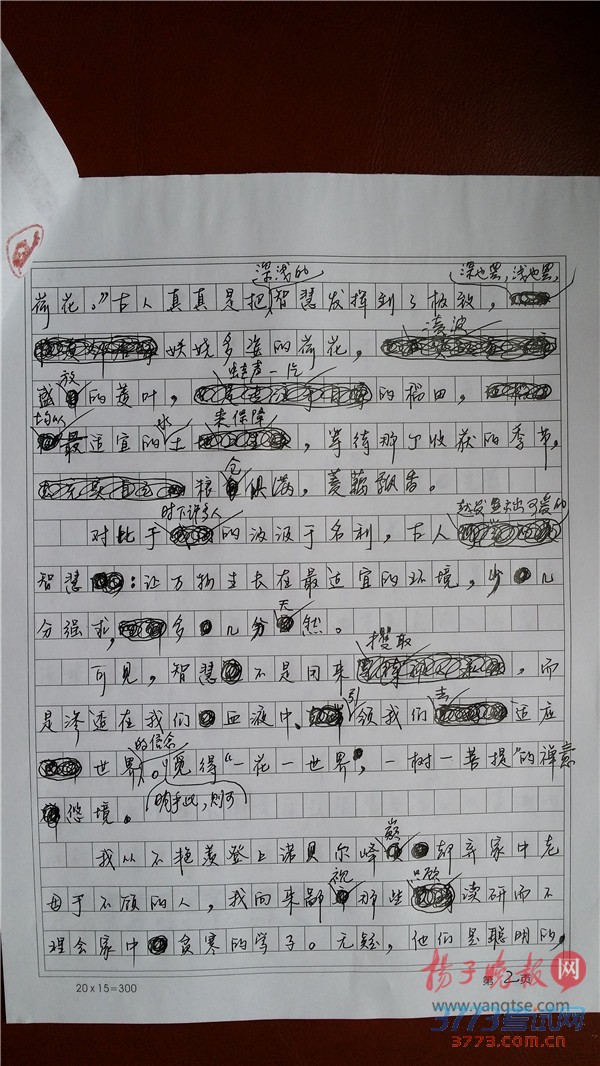 深浅的
深也罢,浅也罢,
荷花。”古人真真是把智慧发挥到了极致,
凌波
妖娆多姿的荷花,
放
蛙声一片
盛的菱叶,的稻田,
均以
水
来保障
最适宜的土,等待那个收获的季节,
仓
粮俱满,菱藕飘香。
时下许多人
越发显出可贵的
对比于的汲汲于名利,古人
智慧:让万物生长在最适宜的环境,少几
天
分强求,多几分然。
攫取
可见,智慧不是用来,而
引
去
是渗透在我们血液中、领我们适应
的信念
世界。觅得“一花一世界,一树一菩提”的禅意
明乎此,则可
悠境。
巅
我从不艳羡登上诺贝尔峰却弃家中老
视
只顾
母于不顾的人,我向来鄙那些读研而不
理会家中贫寒的学子。无疑,他们是聪明的,
20×15=300
第2页
扬子晚报网
www.yangtse.com
3773考试网
3773.com.cn